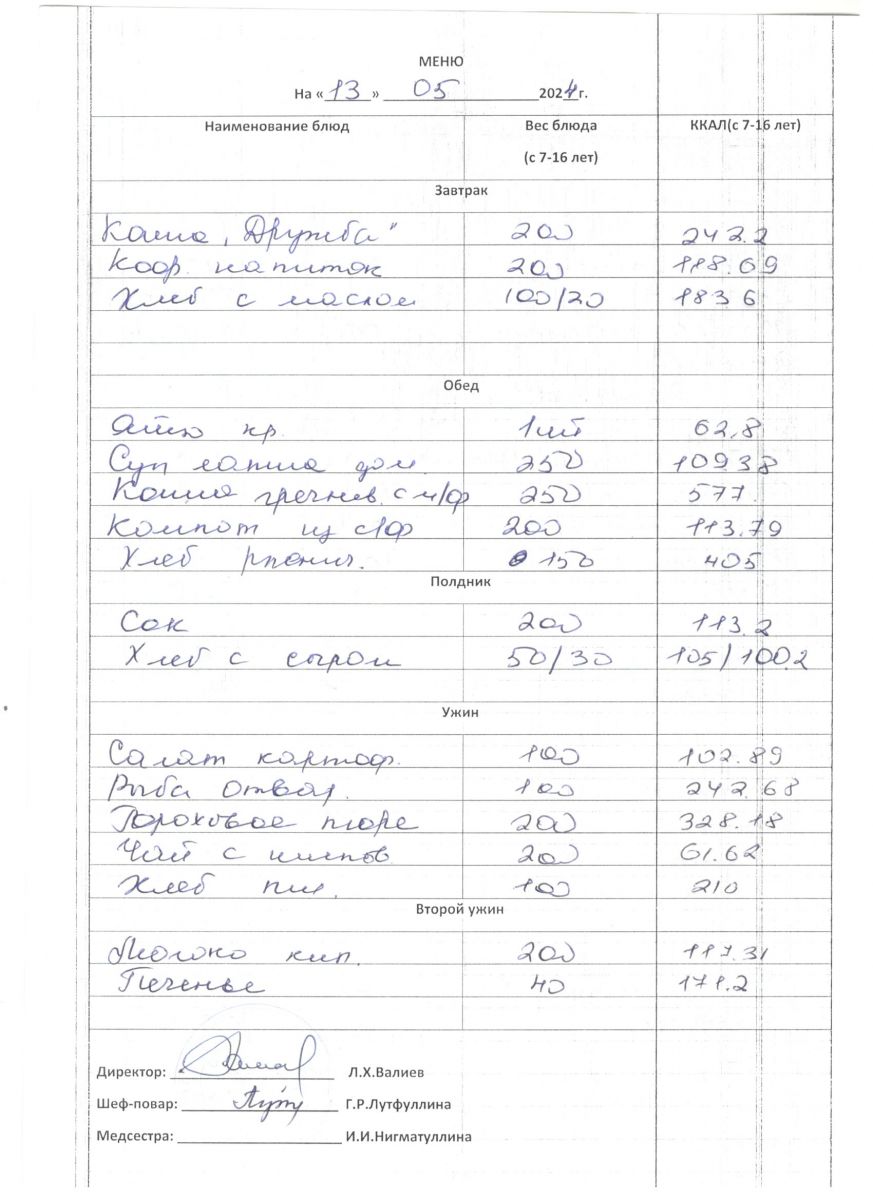 МЕНЮ
На «13» 05 2024г.
Наименование блюд Вес блюда (с 7-16 лет) ККАЛ(с 7-16 лет)
Завтрак
Каша „Дружба" 200 242.2
Коф. напиток 200 118.69
Хлеб с маслом 100/20 183 6
Обед
Яйцо кр. 1шт 62,8
Суп лапша дом. 250 109 38
Каша гречнев. с м/ф 250 577.
Компот из с/ф 200 113.79
Хлеб 150 405
Полдник
Сок 200 113.2
Хлеб с сыром 50/30 105/100.2
Ужин
Салат картоф. 100 102.89
Рыба отвар. 100 242.68
Гороховое пюре 200 328.18
Чай с 200 61.62
Хлеб пш. 100 210
Второй ужин
Молоко кип. 200 117.31
Печенье 40 171.2
Директор: Л.Х.Валиев
Шеф-повар: Г.Р.Лутфуллина
Медсестра: И.И.Нигматуллина